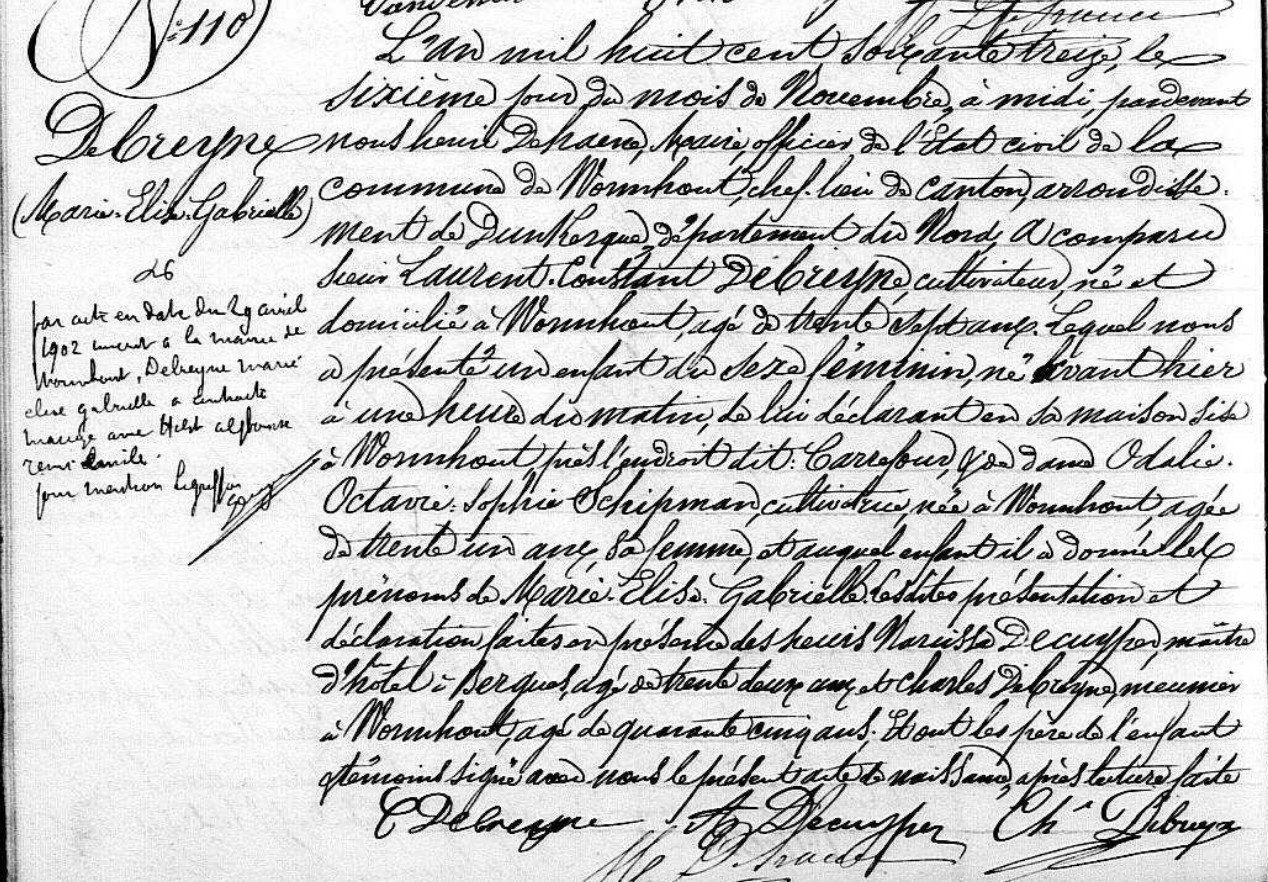 N: 110
L'an mil huit cent soixante treize, le
sixième jour du mois de Novembre, à midi, pardevant
Debreyne
nous henri Dehaene, Maire, officier de l'État civil de la
commune de Wormhout, chef-lieu de canton, arrondisse-
(Marie-Elise-Gabrielle)
ment de Dunkerque, département du Nord, A comparu
sieur Laurent-Constant Debreyne, cultivateur, né et
domicilié à Wormhout, agé de trente sept ans. Lequel nous
a présenté un enfant du sexe féminin, né avant hier
à une heure du matin, de lui déclarant en sa maison sise
à Wormhout, près l'endroit dit: Carrefour, & de dame Odalie-
Octavie-Sophie Schipman, cultivatrice, née à Wormhout, agée
de trente un ans, sa femme, et auquel enfant il a donné les
prénoms de Marie-Elise-Gabrielle. Lesdites présentation et
déclaration faites en présence des sieurs Narcisse Decuyper, maître
d'hôtel à Bergues, agé de trente deux ans, et Charles Debreyne, meunier
à Wormhout, agé de quarante cinq ans. Et ont les père de l'enfant
& témoins signé avec nous le présent acte de naissance, après lecture faite
par acte en date du 29 avril
1902 inscrit a la mairie de
Wormhout, Debreyne marie
elise gabrielle a contracté
mariage avec alphonse
remi
pour mention Le greffier
C Debreyne Decuyper Ch Debreyne